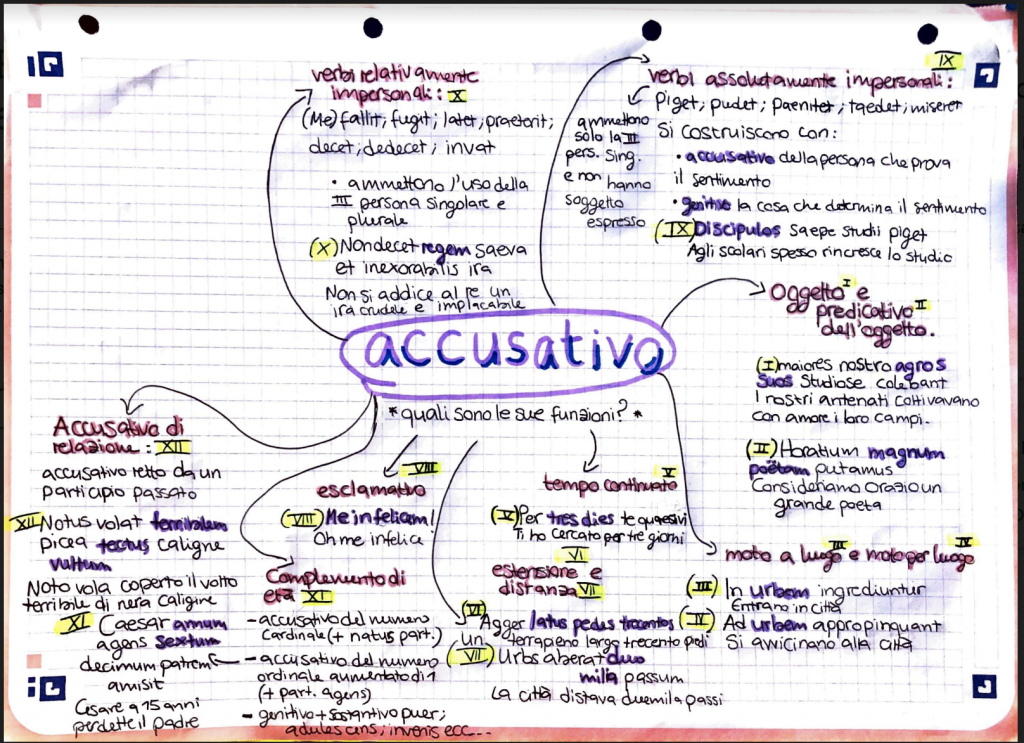 accusativo
*quali sono le sue funzioni?*
Oggetto I e
predicativo II
dell'oggetto.
(I) maiores nostro agros
suos studiose colebant
I nostri antenati coltivavano
con amore i loro campi.
(II) Horatium magnum
poëtam putamus
Consideriamo Orazio un
grande poeta
III IV
moto a luogo e moto per luogo
(III) In urbem ingrediuntur
Entrano in città
(IV) Ad urbem appropinquant
Si avvicinano alla città
V
tempo continuato
(V) Per tres dies te quaesivi
Ti ho cercato per tre giorni
VI
estensione e
distanza VII
(VI) Agger latus pedes trecentos
un terrapieno largo trecento piedi
(VII) Urbs aberat duo
milia passum
La città distava duemila passi
VIII
esclamativo
(VIII) Me infelicem!
Oh me infelice
IX
verbi assolutamente impersonali:
piget; pudet; paenitet; taedet; miseret
ammettono
solo la III
pers. sing.
e non hanno
soggetto
espresso
Si costruiscono con:
• accusativo della persona che prova
il sentimento
• genitivo la cosa che determina il sentimento
(IX) Discipulos saepe studii piget
Agli scolari spesso rincresce lo studio
verbi relativamente
impersonali: X
(Me) fallit; fugit; latet; praeterit;
decet; dedecet; invat
• ammettono l'uso della
III persona singolare e
plurale
(X) Non decet regem saeva
et inexorabilis ira
Non si addice al re un
ira crudele e implacabile
Complemento di
età XI
- accusativo del numero
cardinale (+ natus part.)
- accusativo del numero
ordinale aumentato di 1
(+ part. agens)
- genitivo + sostantivo puer;
adulescens; invenis ecc...
XI Caesar annum
agens sextum
decimum patrem
amisit
Cesare a 15 anni
perdette il padre
Accusativo di
relazione: XII
accusativo retto da un
participio passato
XII Notus volat terribilem
picea tectus caligne
vultum
Noto vola coperto il volto
terribile di nera caligine